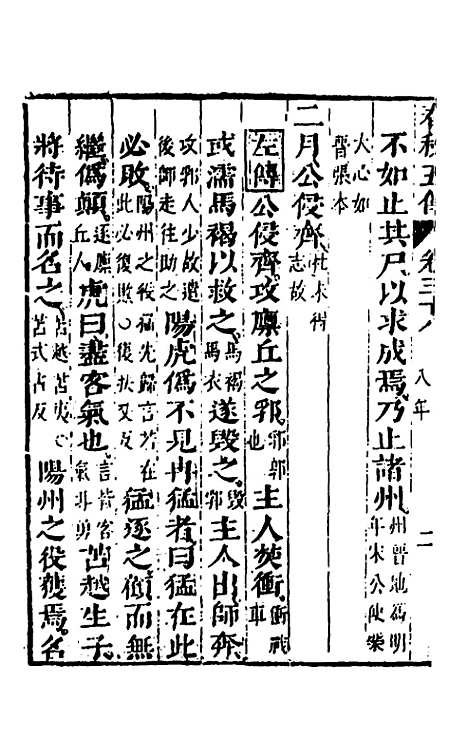 春秋五傳 卷三十八 八年 二
不如止其尸以求成焉乃止諸州州晉地爲明年宋公使樂
大心如晉張本
二月公侵齊杜未得志故
左傳公侵齊攻廩丘之郛郛郭也主人焚衝衝戰車
或濡馬褐以救之馬褐馬衣遂毀之毀郛主人出師奔
攻郛人少故遣後師走往助之陽虎僞不見冉猛者曰猛在此
必敗陽州之役猛先歸言若在此必復敗○復扶又反猛逐之顧而無
繼僞顛逐廩丘人虎曰盡客氣也言皆客氣非勇苫越生子
將待事而名之苫越苫夷○苫式占反陽州之役獲焉名